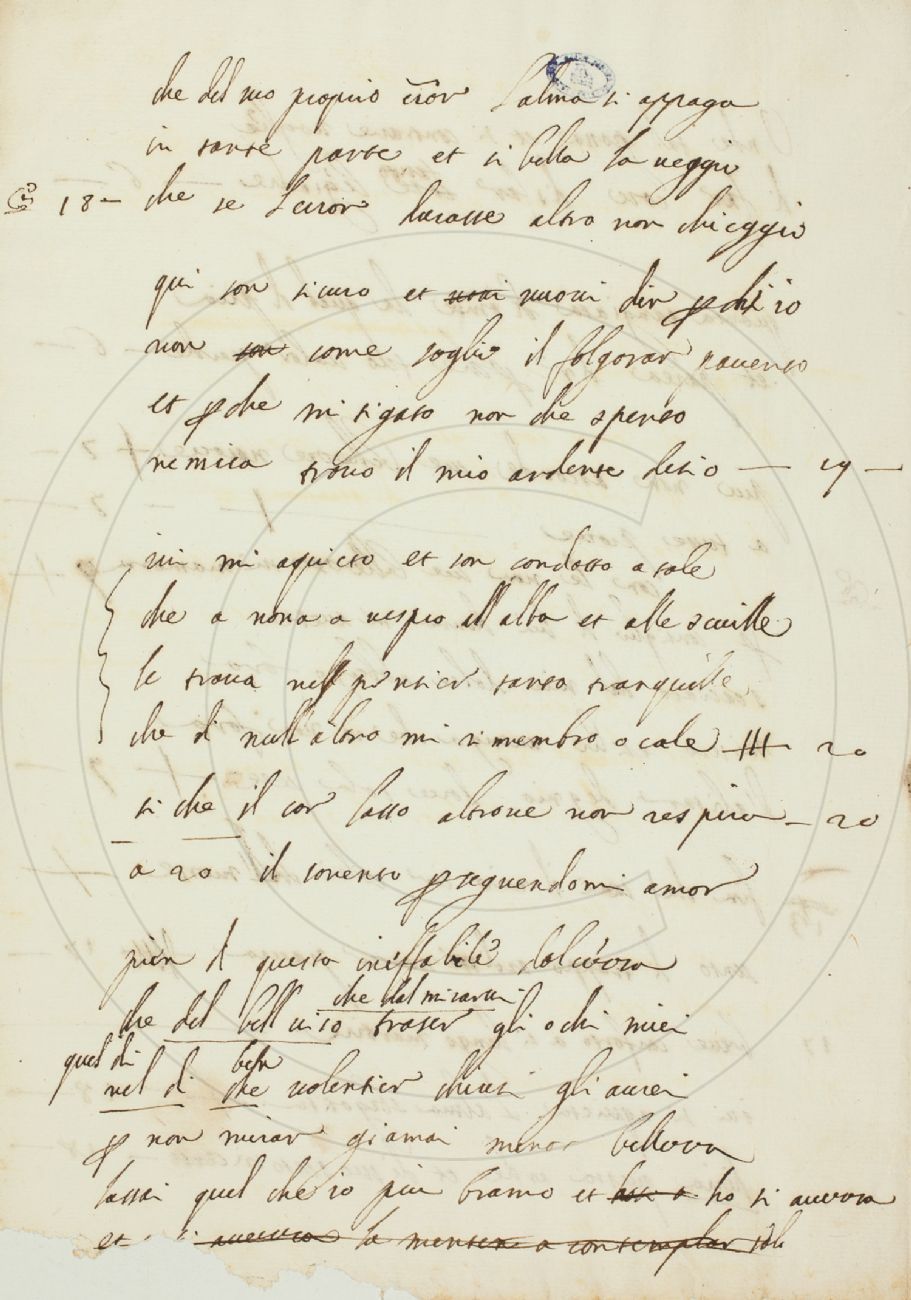 che del suo proprio error l'alma si appaga
in tante parte et si bella la veggio
18 - che se l'error durasse altro non chieggio
qui son sicuro et vuovi dir perch'io
non come soglio il folgorar pavento
et perche mitigato non che spento
nemica trovo il mio ardente desio — 19 —
ivi mi aquieto et son condotto a tale
che a nona a vespro all alba et alle squille
le trova nell pensier tanto tranquille
che di null altro mi rimembra o cale 20
si che il cor lasso altrove non respira - 20
a 20 il sovento perseguendomi amor
pien di questa ineffabile dolcezza
che dal mirarvi
che del bell viso trasser gli ochi miei
quel di ben
nel di che volentier chiusi gli avrei
p non mirar giamai minor bellezza
lassai quel che io piu bramo et ho si avezza
et la mente a contemplar sola